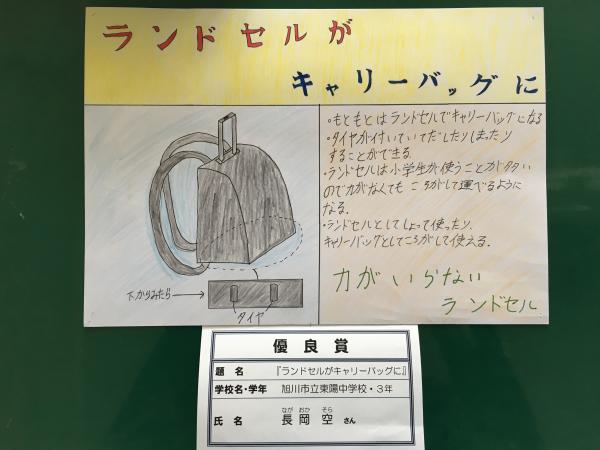 ランドセルが
キャリーバッグに
・もともとはランドセルでキャリーバッグになる
・タイヤが付いていてだしたりしまったり
することができる.
・ランドセルは小学生が使うことが多い
ので力がなくてもころがして運べるように
なる.
・ランドセルとしてしょって使ったり.
キャリーバッグとしてころがして使える.
力がいらない
ランドセル
下からみたら→
タイヤ
優良賞
題 名 『ランドセルがキャリーバッグに』
学校名・学年 旭川市立東陽中学校・3年
なが おか そら
氏 名 長岡 空 さん